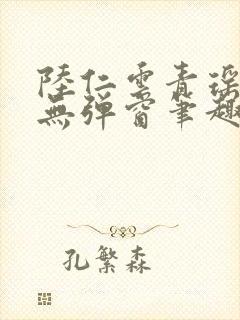 陸仁雲青瑤
無彈窗筆趣
孔繁森